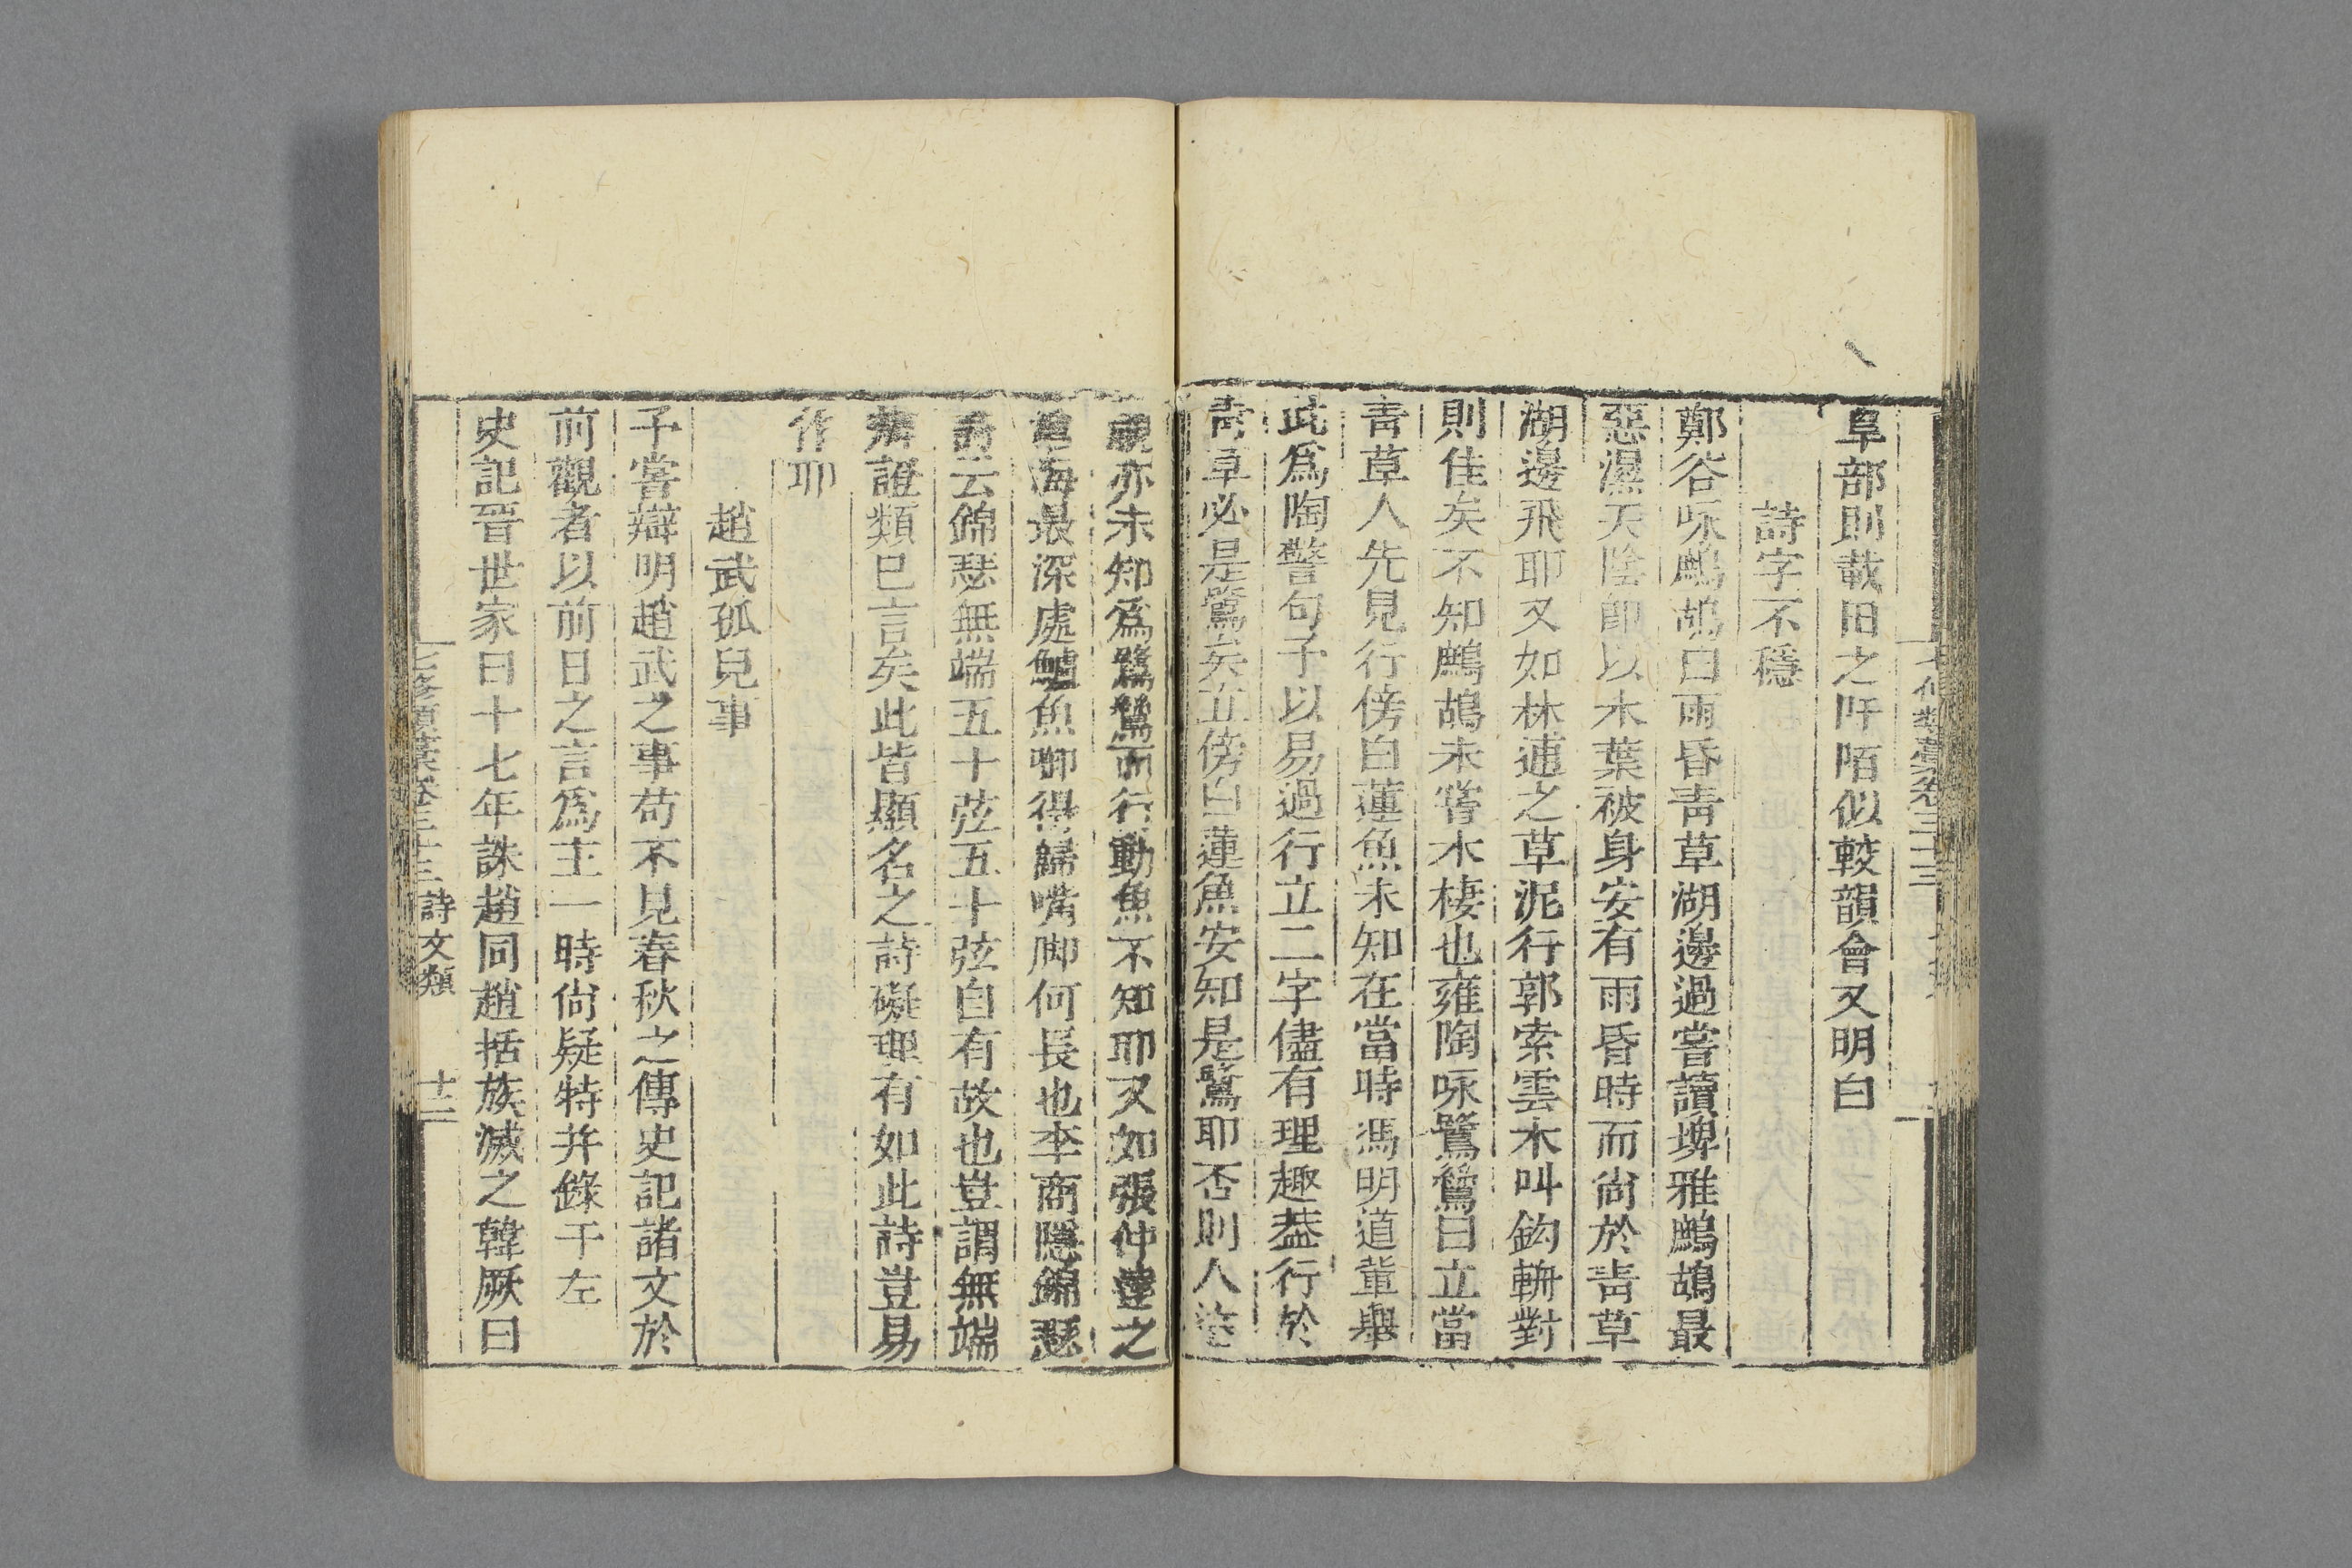 阜部則載田之阡陌似較韻會又明白
詩字不穩
鄭谷咏鷓鴣曰雨昏青草湖邊過嘗讀埤雅鷓鴣最
惡濕天陰即以木葉被身安有雨昏時而尙於青草
湖邊飛耶又如林逋之草泥行郭索雲木叫鈎輈對
則佳矣不知鷓鴣未嘗木棲也雍陶咏鷺鷥曰立當
青草人先見行傍白蓮魚未知在當時馮明道輩舉
此爲陶警句予以易過行立二字儘有理趣葢行於
青草必是鷺矣立傍白蓮魚安知是鷺耶否則人
亦未知爲鷺鷥而行動魚不知耶又如張仲達之
海最深處鱸魚啣得歸嘴脚何長也李商隱錦瑟
云錦瑟無端五十弦五十弦自有故也豈謂無端
辯證類已言矣此皆顯名之詩礙理有如此詩豈易
作耶
趙武孤兒事
予嘗辯明趙武之事苟不見春秋之傳史記諸文於
前觀者以前日之言爲主一時尙疑特并錄于左
史記晉世家曰十七年誅趙同趙括族滅之韓厥曰
七修類藁卷三十三 詩文類 十二